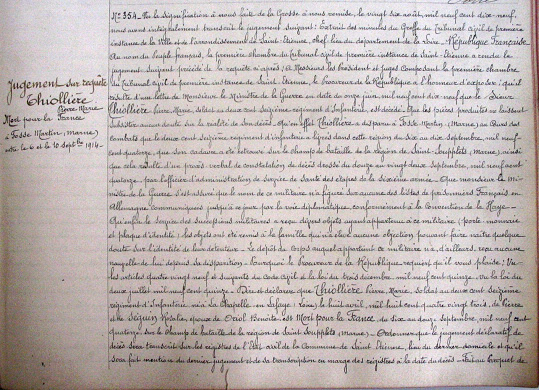 Jugement sur requête
Thiollière
Pierre Marie
Mort pour la France
à Fosse Martin, (Marne)
entre le 6 et le 10 Septbre 1914
N° 354. Par la signification à nous faite de la Grosse à nous remise, le vingt six août, mil neuf cent dix-neuf,
nous avons intégralement transcrit le jugement suivant: Extrait des minutes du Greffe du Tribunal civil de première
instance de la Ville et de l'arrondissement de Saint-Etienne, chef-lieu du département de la Loire. République Française
Au nom du peuple français, la première chambre du Tribunal civil de première instance de Saint-Etienne a rendu le
jugement suivant précédé de la requête ci après: A Messieurs les Président et Juges composant la première chambre
du Tribunal civil de première instance de Saint-Etienne, le Procureur de la République a l'honneur d'exposer: qu'il
résulte d'une lettre de Monsieur le Ministre de la Guerre en date du onze juin mil neuf cent dix neuf que le sieur
Thiollière, Pierre, Marie, soldat au deux cent seizième régiment d'Infanterie, est décédé. Que les pièces produites ne laissent
subsister aucun doute sur la réalité de son décès. Qu'en effet Thiollière a disparu à Fosse Martin, (Marne) au cours des
combats que le deux cent seizième régiment d'infanterie a livrés dans cette région du six au dix septembre, mil neuf
cent quatorze, que son cadavre a été retrouvé sur le champ de bataille de la région de Saint-Soupplets, (Marne), ainsi
que cela résulte d'un procès verbal de constatation de décès dressé du douze au vingt deux septembre, mil neuf cent
quatorze, par l'officier d'administration du service de Santé des étapes de la sixième armée. Que monsieur le mi-
nistre de la Guerre s'est assuré que le nom de ce militaire n'a figuré sur aucune des listes de prisonniers Français en
Allemagne communiquées jusqu'à ce jour, par la voie diplomatique, conformément à la Convention de la Haye.
Qu'enfin le service des successions militaires a reçu divers objets ayant appartenu à ce militaire (porte-monnaie
et plaque d'identité); les objets ont été remis à la famille qui n'a élevé aucune objection pouvant faire naître quelque
doute sur l'identité de leur détenteur. Le dépôt du corps auquel appartient ce militaire n'a, d'ailleurs, reçu aucune
nouvelle de lui depuis sa disparition. Pourquoi le Procureur de la République requiert qu'il vous plaise: Vu
les articles quatre vingt neuf et suivants du code civil & la loi du trois décembre, mil neuf cent quinze. Vu la loi du
deux juillet, mil neuf cent quinze. Dire et déclarer que Thiollière Pierre, Marie, soldat au deux cent seizième
régiment d'Infanterie, né à la Chapelle-en-Lafaye, (Loire) le huit avril, mil huit cent quatre vingt trois, de Pierre
et de Séguin Natalie, époux de Oriol Benoîte est Mort pour la France, du six au dix septembre, mil neuf cent
quatorze, sur le champ de bataille de la région de Saint Soupplets, (Marne). Ordonner que le jugement déclaratif de
décès sera transcrit sur les registres de l'Etat civil de la Commune de Saint Etienne, lieu du dernier domicile et qu'il
sera fait mention du dernier jugement et de sa transcription en marge des registres à la date du décès. Fait au Parquet de